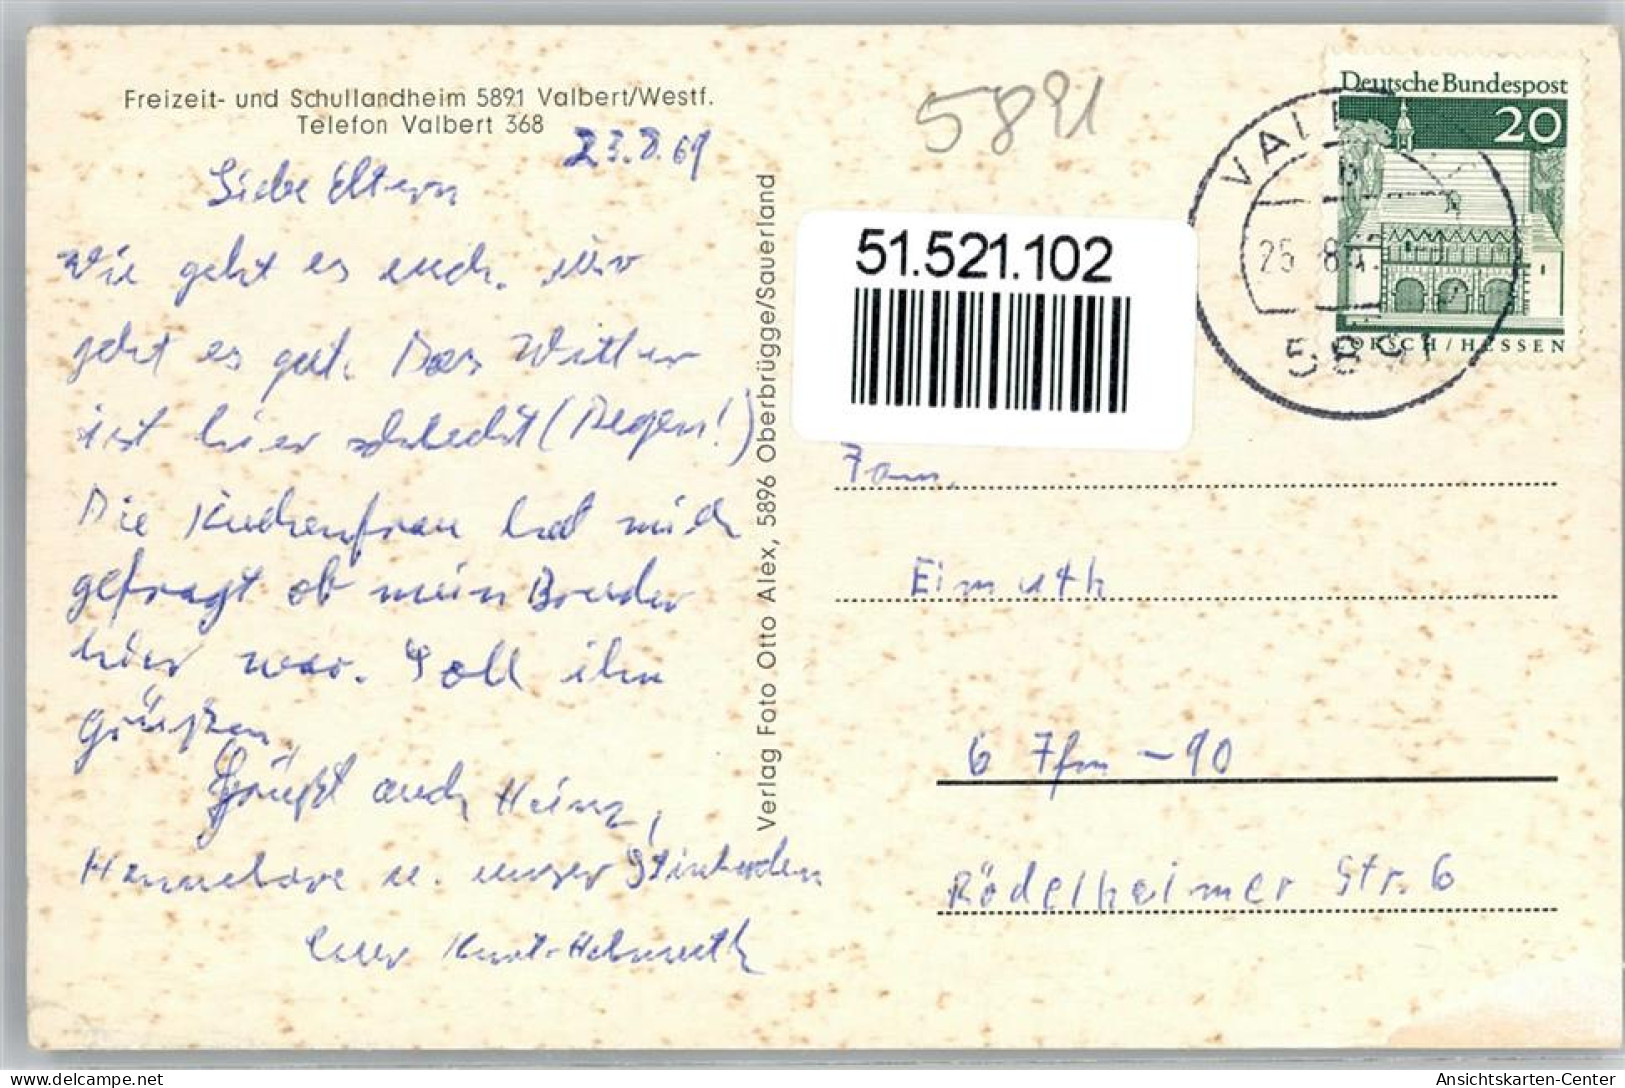 Freizeit- und Schullandheim 5891 Valbert/Westf.
Telefon Valbert 368
23.8.69
Liebe Eltern
Wie geht es euch. mir
geht es gut. Das Wetter
ist hier schlecht (Regen!)
Die Küchenfrau hat mich
gefragt ob mein Bruder
hier war. Soll ihn
Grüßen.
Grüßt auch Heinz,
Hannelore u. unser
Euer Knut-Helmuth
Verlag Foto Otto Alex, 5896 Oberbrügge/Sauerland
5891
Deutsche Bundespost
20
LORSCH/HESSEN
VALBERT
25.8.
5891
51.521.102
Fam.
Eimuth
6 Ffm - 90
Rödelheimer Str. 6
Ansichtskarten-Center